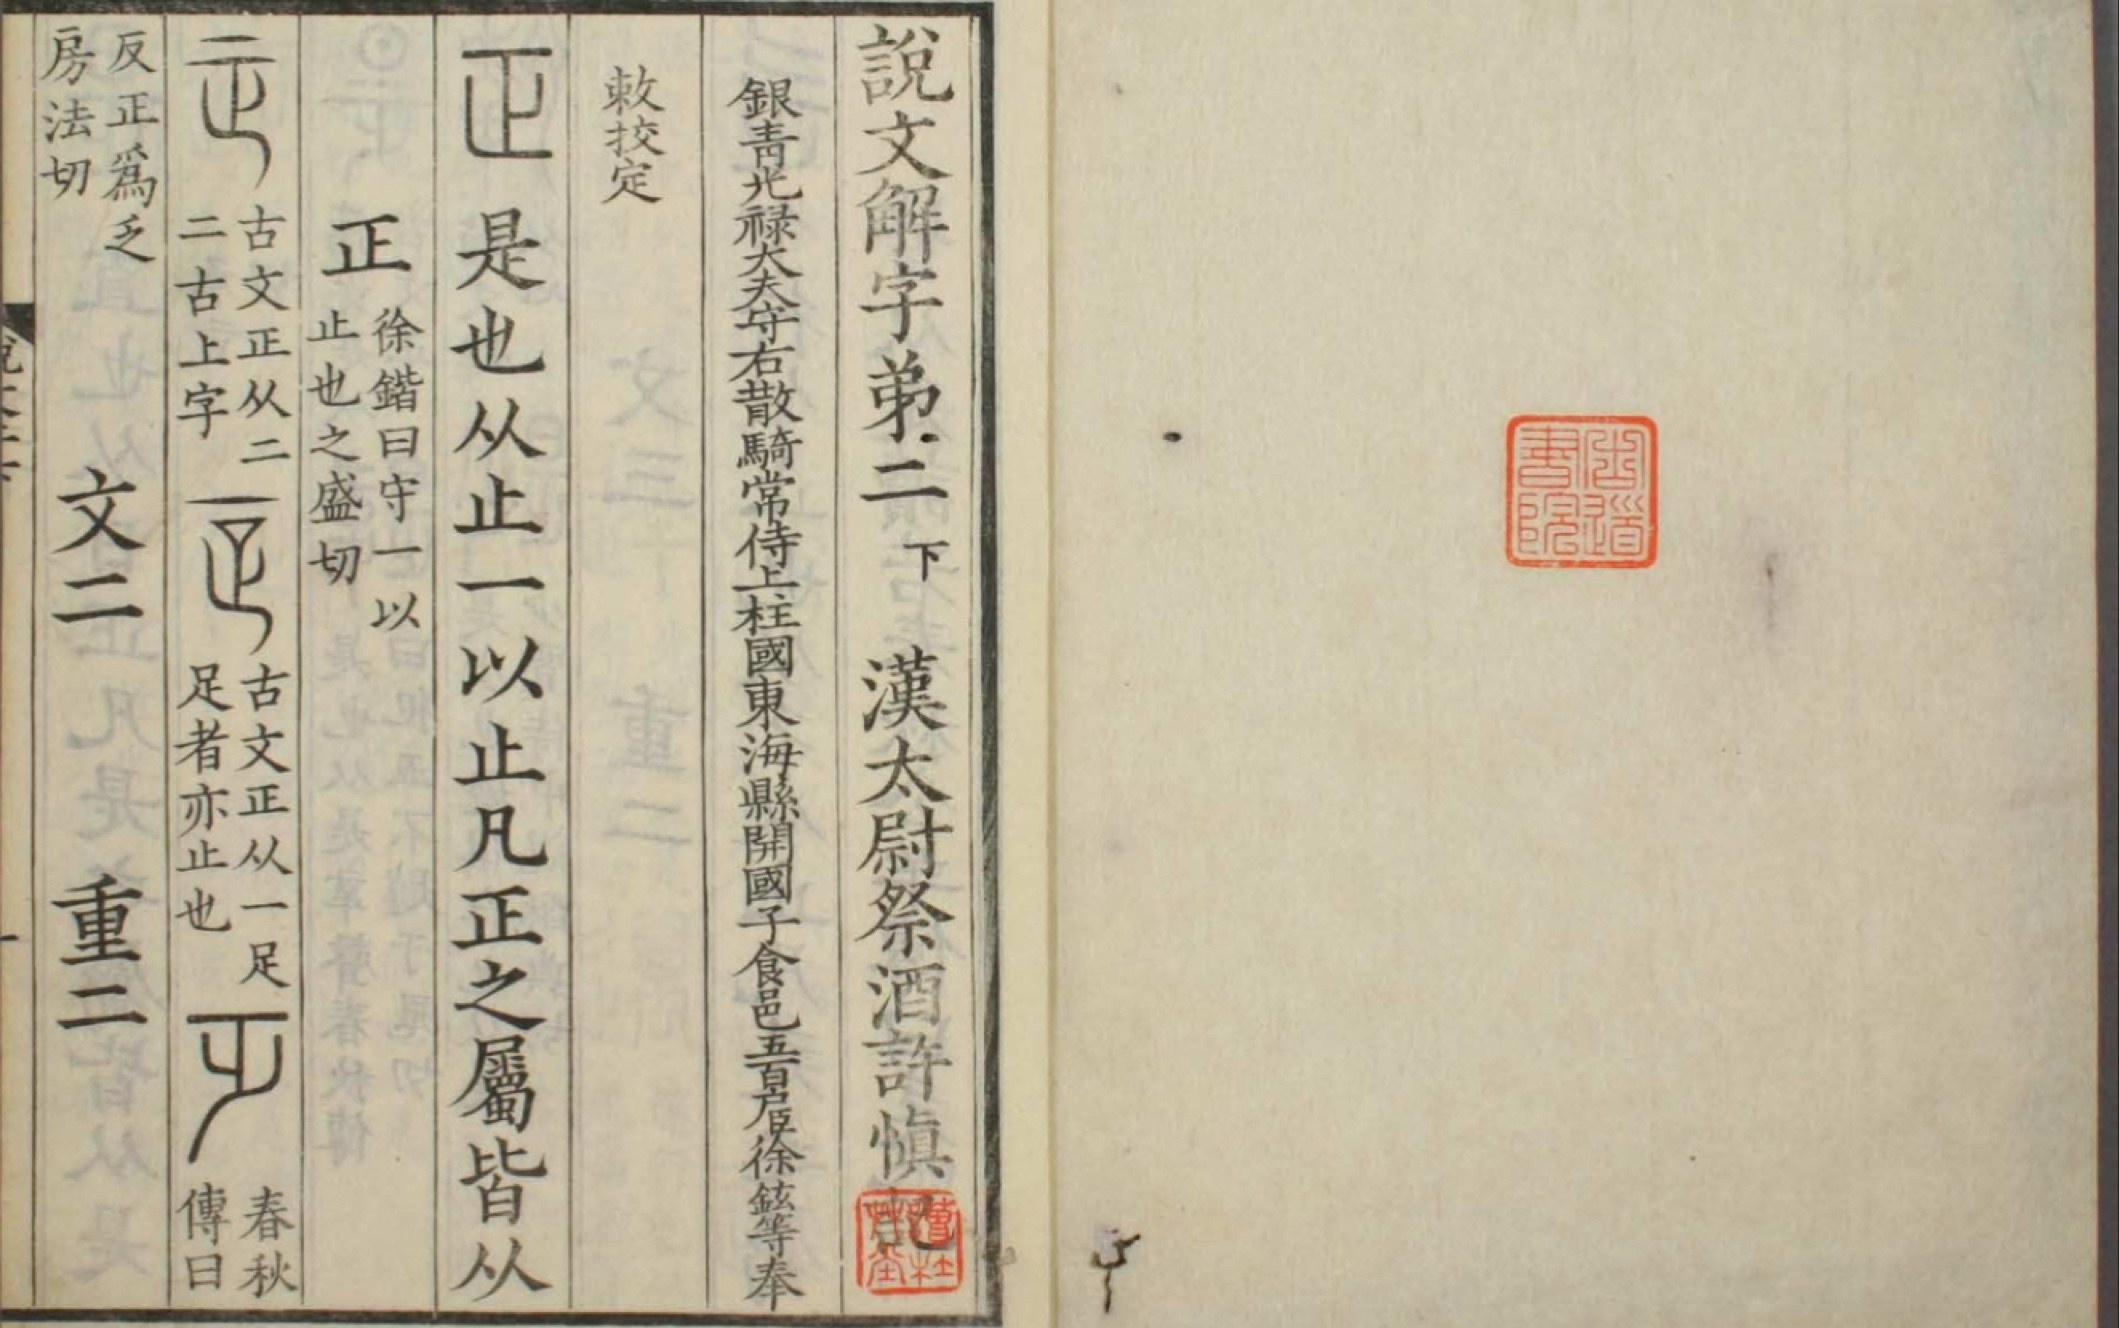 說文解字弟二下 漢太尉祭酒許慎記
銀青光禄大夫守右散騎常侍上柱國東海縣開國子食邑五百戶臣徐鉉等奉
敕挍定
正 是也从止一以止凡正之屬皆从
正 徐鍇曰守一以
止也之盛切
𤴓 古文正从二
二古上字
𧾷 古文正从一足
足者亦止也
乏 春秋
傳曰
反正爲乏
房法切
文二 重二
書院